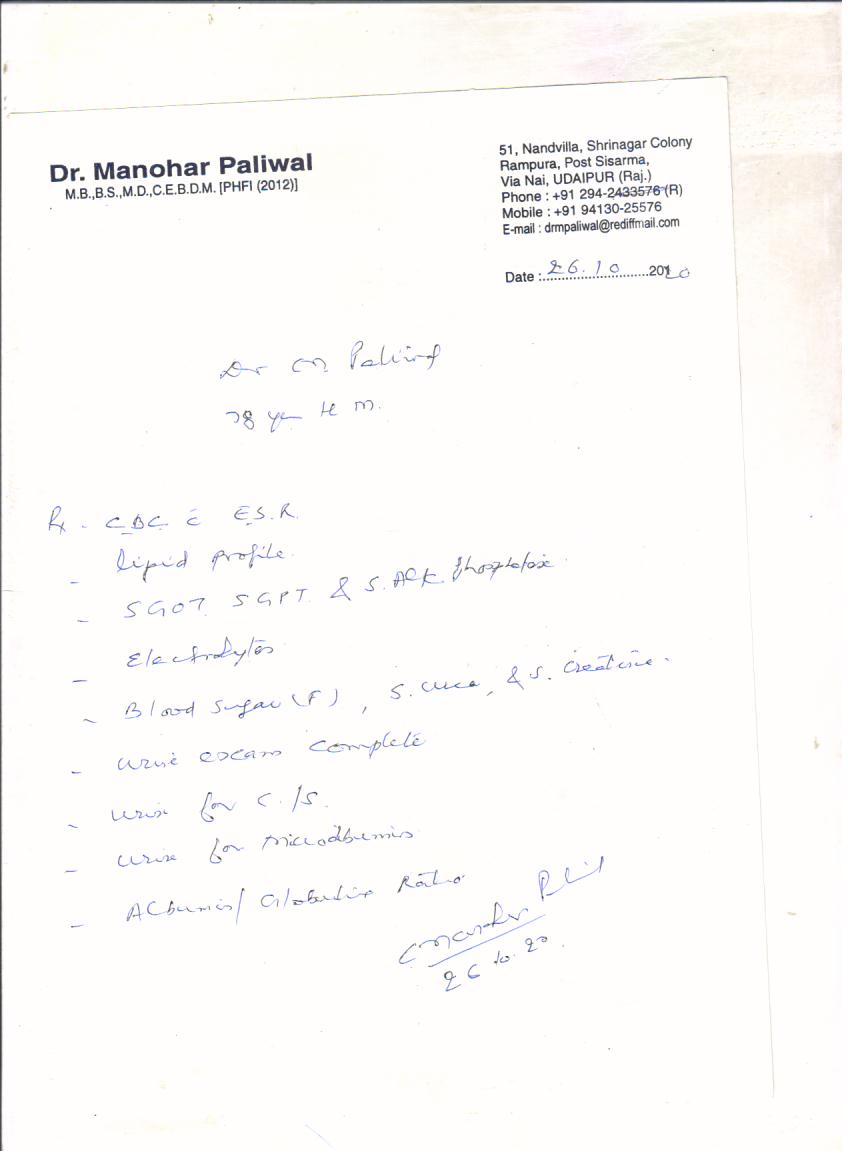 Dr. Manohar Paliwal
M.B.,B.S.,M.D.,C.E.B.D.M. [PHFI (2012)]
51, Nandvilla, Shrinagar Colony
Rampura, Post Sisarma,
Via Nai, UDAIPUR (Raj.)
Phone : +91 294-2433576 (R)
Mobile : +91 94130-25576
E-mail : drmpaliwal@rediffmail.com
Date : 26.10 2020
Dr M Paliwal
78 yr H M.
Rx - CBC c̄ E.S.R.
- Lipid profile.
- SGOT SGPT & S. Alk. Phosphatase
- Electrolytes
- Blood Sugar (F), S. Urea, & S. Creatinine.
- Urine exam complete
- Urine for C./S.
- Urine for Microalbumin
- Albumin/Globulin Ratio
Manohar Paliwal
26.10.20.